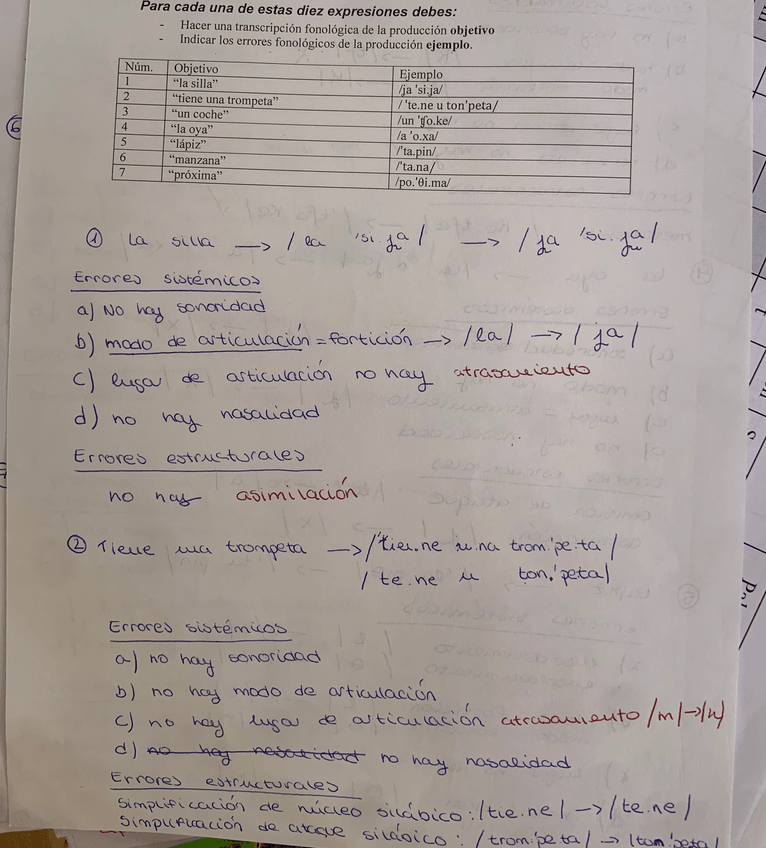 Para cada una de estas diez expresiones debes:
- Hacer una transcripción fonológica de la producción objetivo
- Indicar los errores fonológicos de la producción ejemplo.
Núm. Objetivo Ejemplo
1 "la silla" /ja 'si.ja/
2 "tiene una trompeta" / 'te.ne u ton'peta/
3 "un coche" /un 'ʧo.ke/
4 "la oya" /a 'o.xa/
5 "lápiz" /'ta.pin/
6 "manzana" /'ta.na/
7 "próxima" /po.'θi.ma/
① La silla → / la 'si. ʝa / → / ʝa 'si. ʝa /
Errores sistémicos
a) No hay sonoridad
b) modo de articulación = fortición → /la/ → / ʝa /
c) lugar de articulación no hay atrasamiento
d) no hay nasalidad
Errores estructurales
no hay asimilación
② Tiene una trompeta → /'tie.ne u.na trom.'pe.ta /
/ te.ne u ton.'peta/
Errores sistémicos
a) no hay sonoridad
b) no hay modo de articulación
c) no hay lugar de articulación atrasamiento /m/→/n/
d) no hay nasalidad no hay nasalidad
Errores estructurales
Simplificación de núcleo silábico : /tie.ne/ → /te.ne/
Simplificación de ataque silábico : /trom.'peta/ → /tom.'peta/